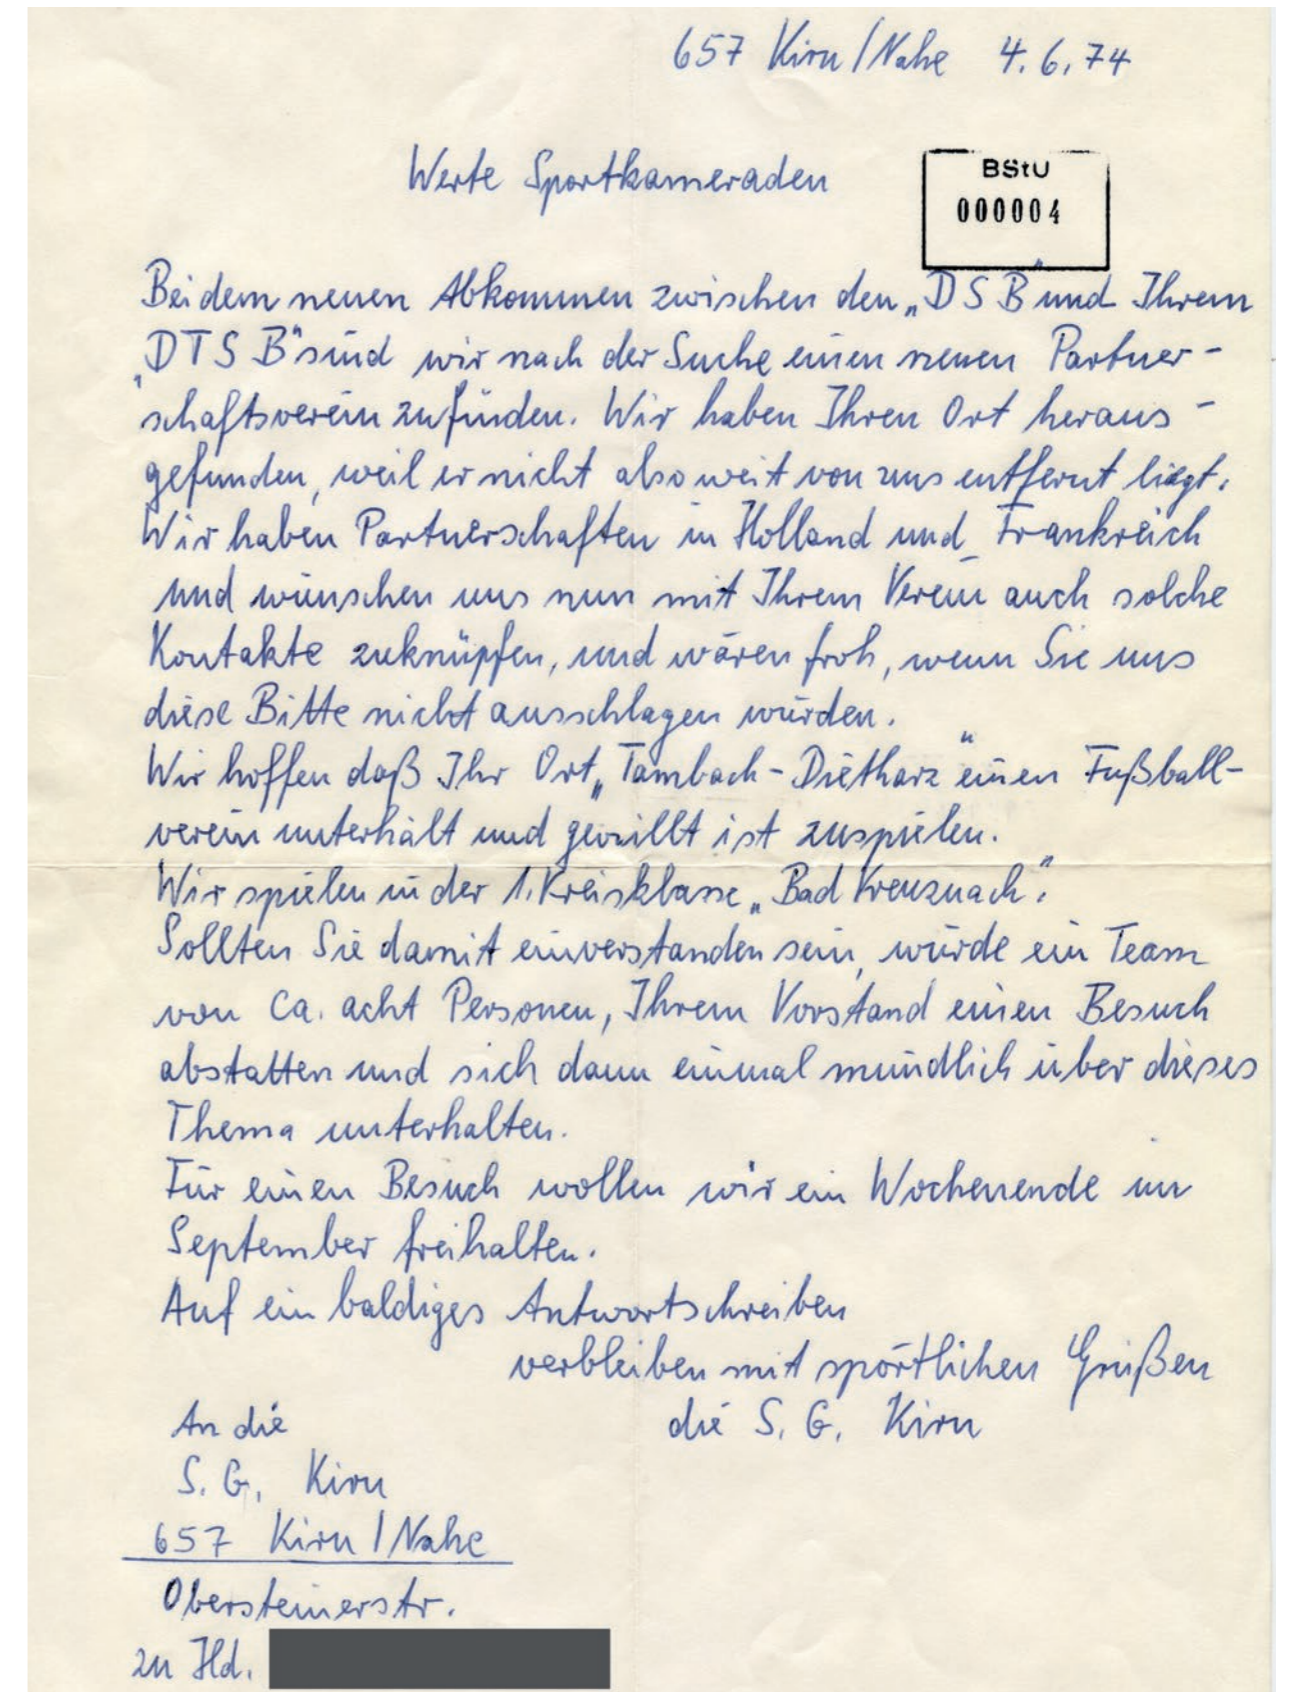 657 Kirn/Nahe 4.6.74
Werte Sportkameraden
BStU
000004
Bei dem neuen Abkommen zwischen den „DSB" und Ihrem
„DTSB" sind wir nach der Suche einen neuen Partner-
schaftsverein zufinden. Wir haben Ihren Ort heraus-
gefunden, weil er nicht also weit von uns entfernt liegt.
Wir haben Partnerschaften in Holland und Frankreich
und wünschen uns nun mit Ihrem Verein auch solche
Kontakte zuknüpfen, und wären froh, wenn Sie uns
diese Bitte nicht ausschlagen würden.
Wir hoffen daß Ihr Ort „Tambach-Dietharz" einen Fußball-
verein unterhält und gewillt ist zuspielen.
Wir spielen in der 1. Kreisklasse „Bad Kreuznach".
Sollten Sie damit einverstanden sein, würde ein Team
von ca. acht Personen, Ihrem Vorstand einen Besuch
abstatten und sich dann einmal mündlich über dieses
Thema unterhalten.
Für einen Besuch wollen wir ein Wochenende im
September freihalten.
Auf ein baldiges Antwortschreiben
verbleiben mit sportlichen Grüßen
die S. G. Kirn
An die
S. G. Kirn
657 Kirn/Nahe
Obersteinerstr.
zu Hd.